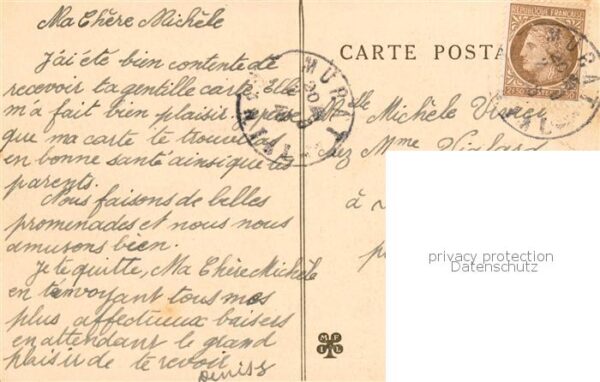 Ma Chère Michèle
J'ai été bien contente de
recevoir ta gentille carte. Elle
m'a fait bien plaisir
que ma carte te
en bonne santé ainsi que tes
parents.
Nous faisons de belles
promenades et nous nous
amusons bien.
Je te quitte, Ma Chère Michèle
en t'envoyant tous mes
plus affectueux baisers
en attendant le grand
plaisir de te revoir
Denise
CARTE POSTA
Melle Michèle
chez Mme
à
REPUBLIQUE FRANÇAISE
MURAT
CANTAL
MURAT
privacy protection
Datenschutz